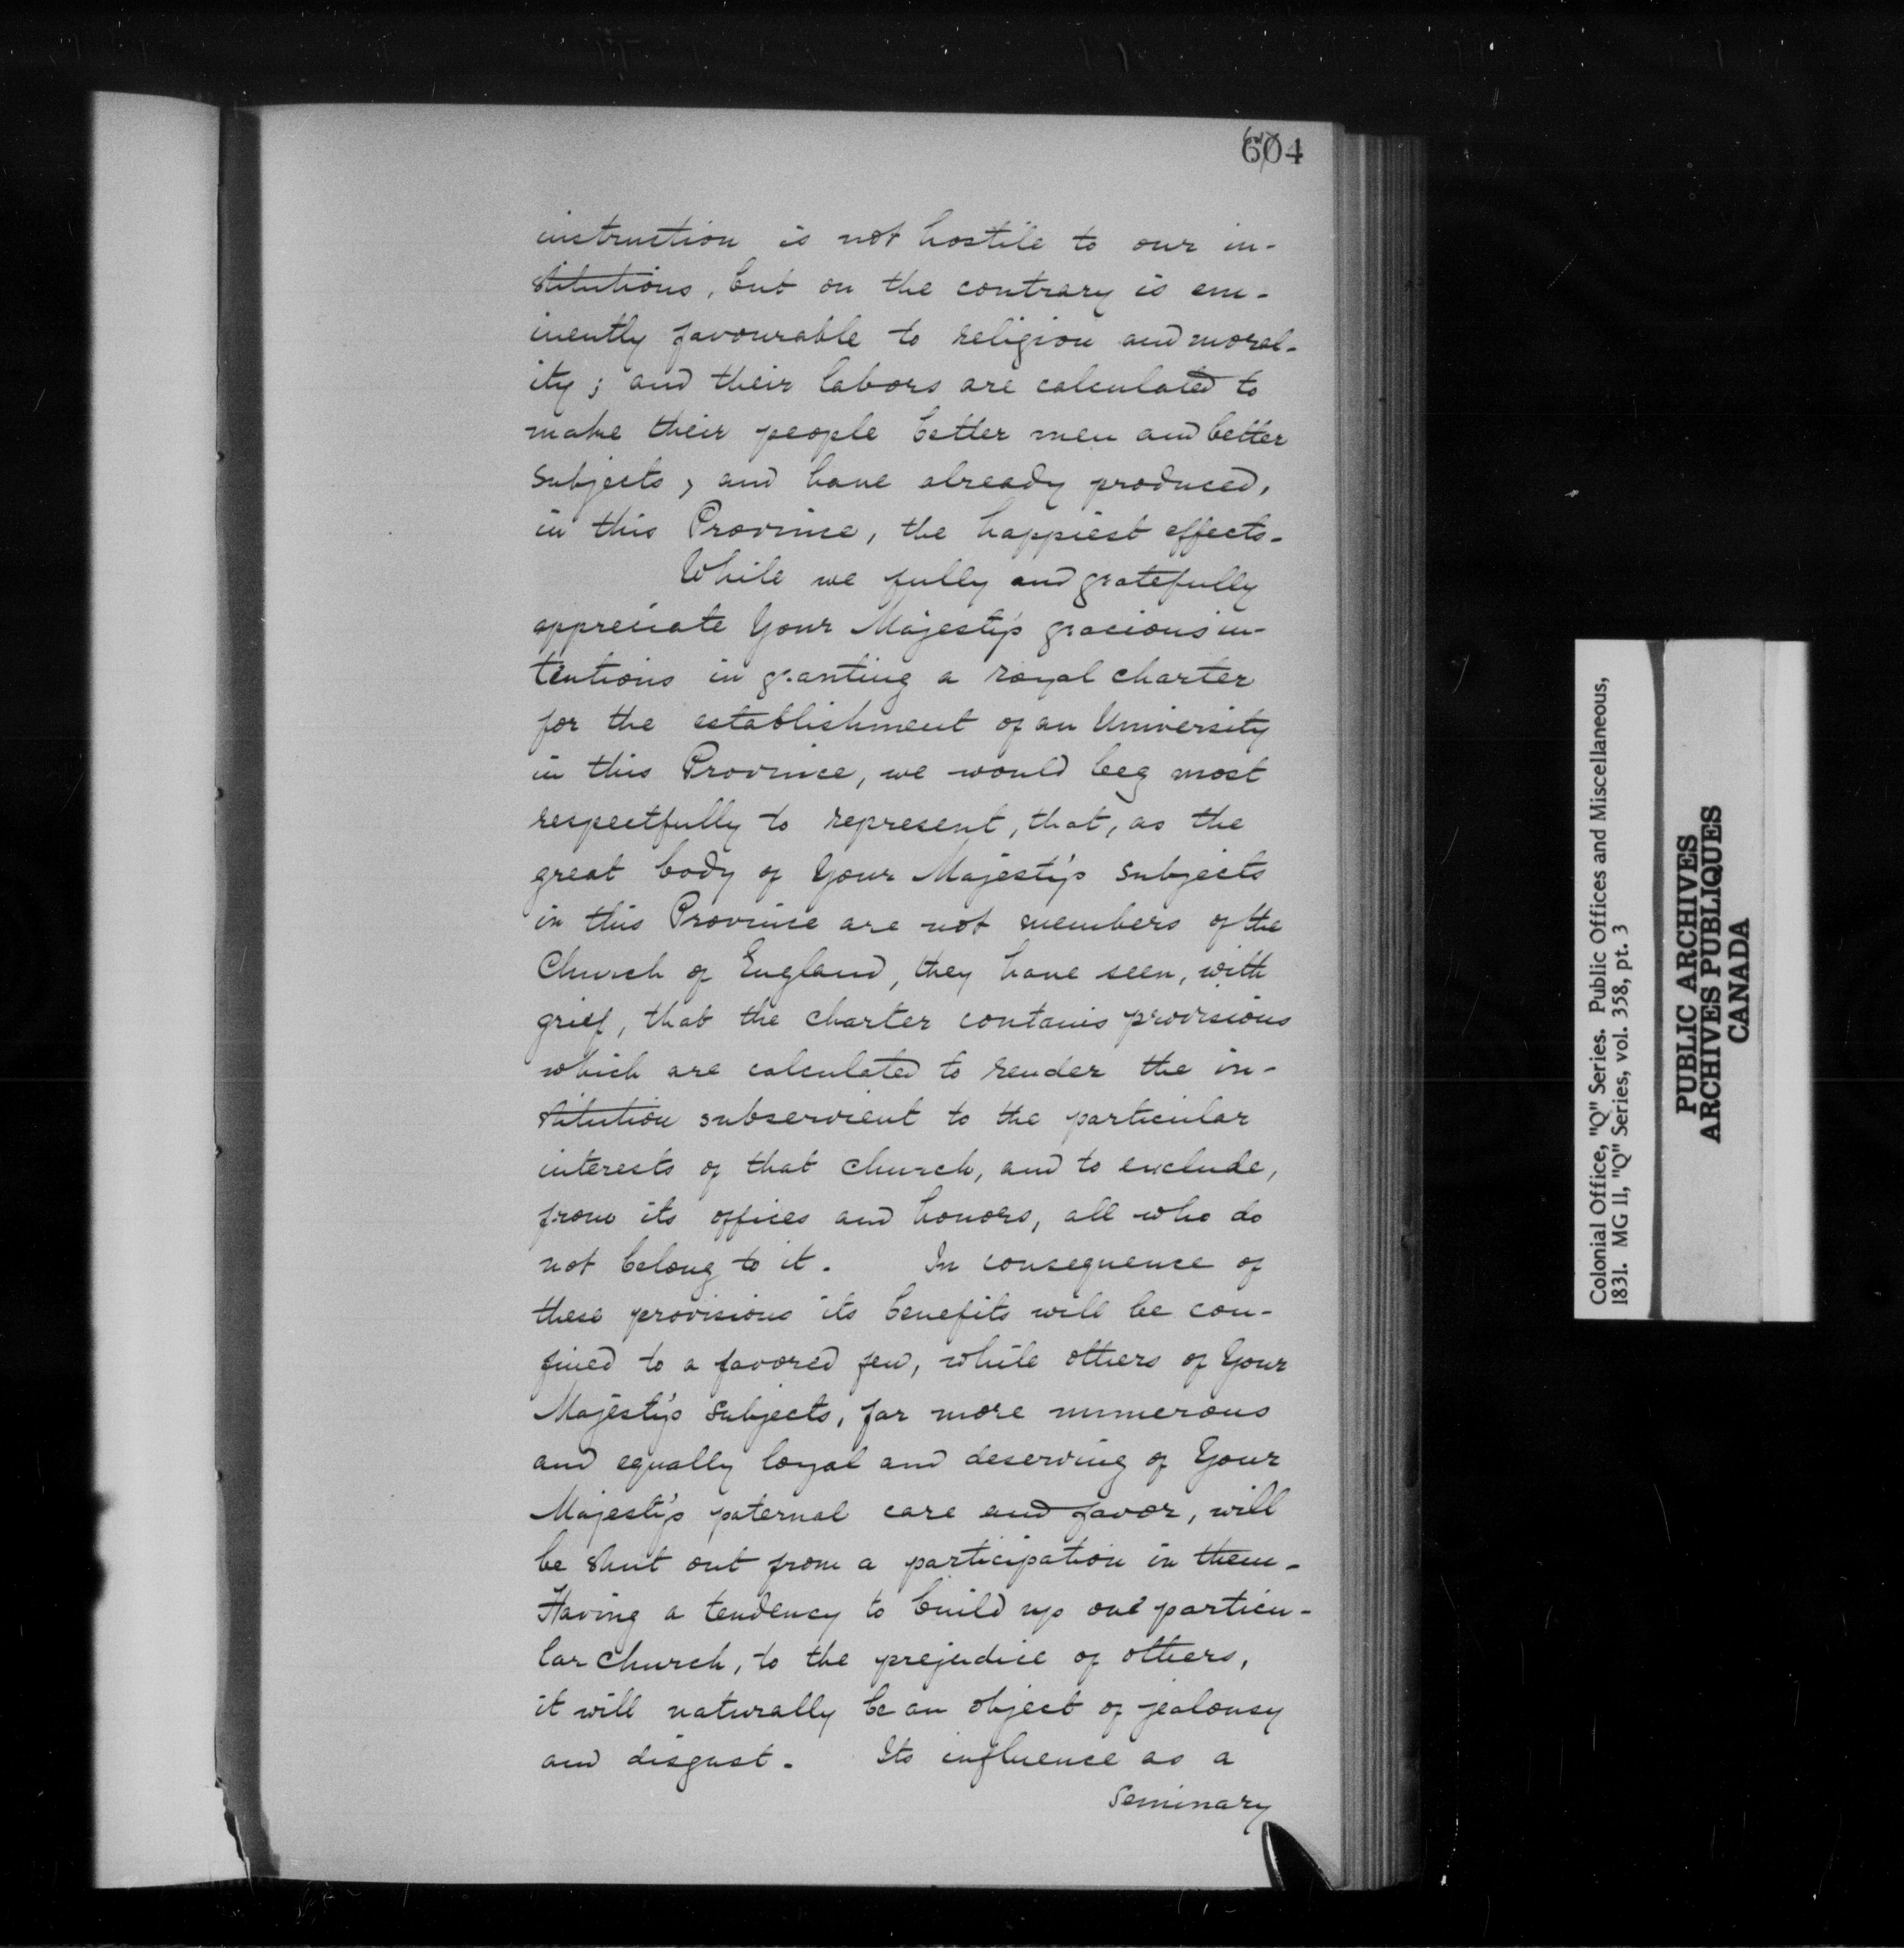 604
instruction is not hostile to our in-
stitutions, but on the contrary is em-
inently favourable to religion and moral-
ity; and their labors are calculated to
make their people better men and better
subjects, and have already produced,
in this Province, the happiest effects.
While we fully and gratefully
appreciate Your Majesty's gracious in-
tentions in granting a royal charter
for the establishment of an University
in this Province, we would beg most
respectfully to represent, that, as the
great body of Your Majesty's subjects
in this Province are not members of the
Church of England, they have seen, with
grief, that the charter contains provisions
which are calculated to render the in-
stitution subservient to the particular
interests of that church, and to exclude,
from its offices and honors, all who do
not belong to it. In consequence of
these provisions its benefits will be con-
fined to a favored few, while others of Your
Majesty's subjects, far more numerous
and equally loyal and deserving of Your
Majesty's paternal care and favor, will
be shut out from a participation in them.
Having a tendency to build up one particu-
lar church, to the prejudice of others,
it will naturally be an object of jealousy
and disgust. Its influence as a
seminary
Colonial Office, "Q" Series. Public Offices and Miscellaneous,
1831. MG 11, "Q" Series, vol. 358, pt. 3
PUBLIC ARCHIVES
ARCHIVES PUBLIQUES
CANADA